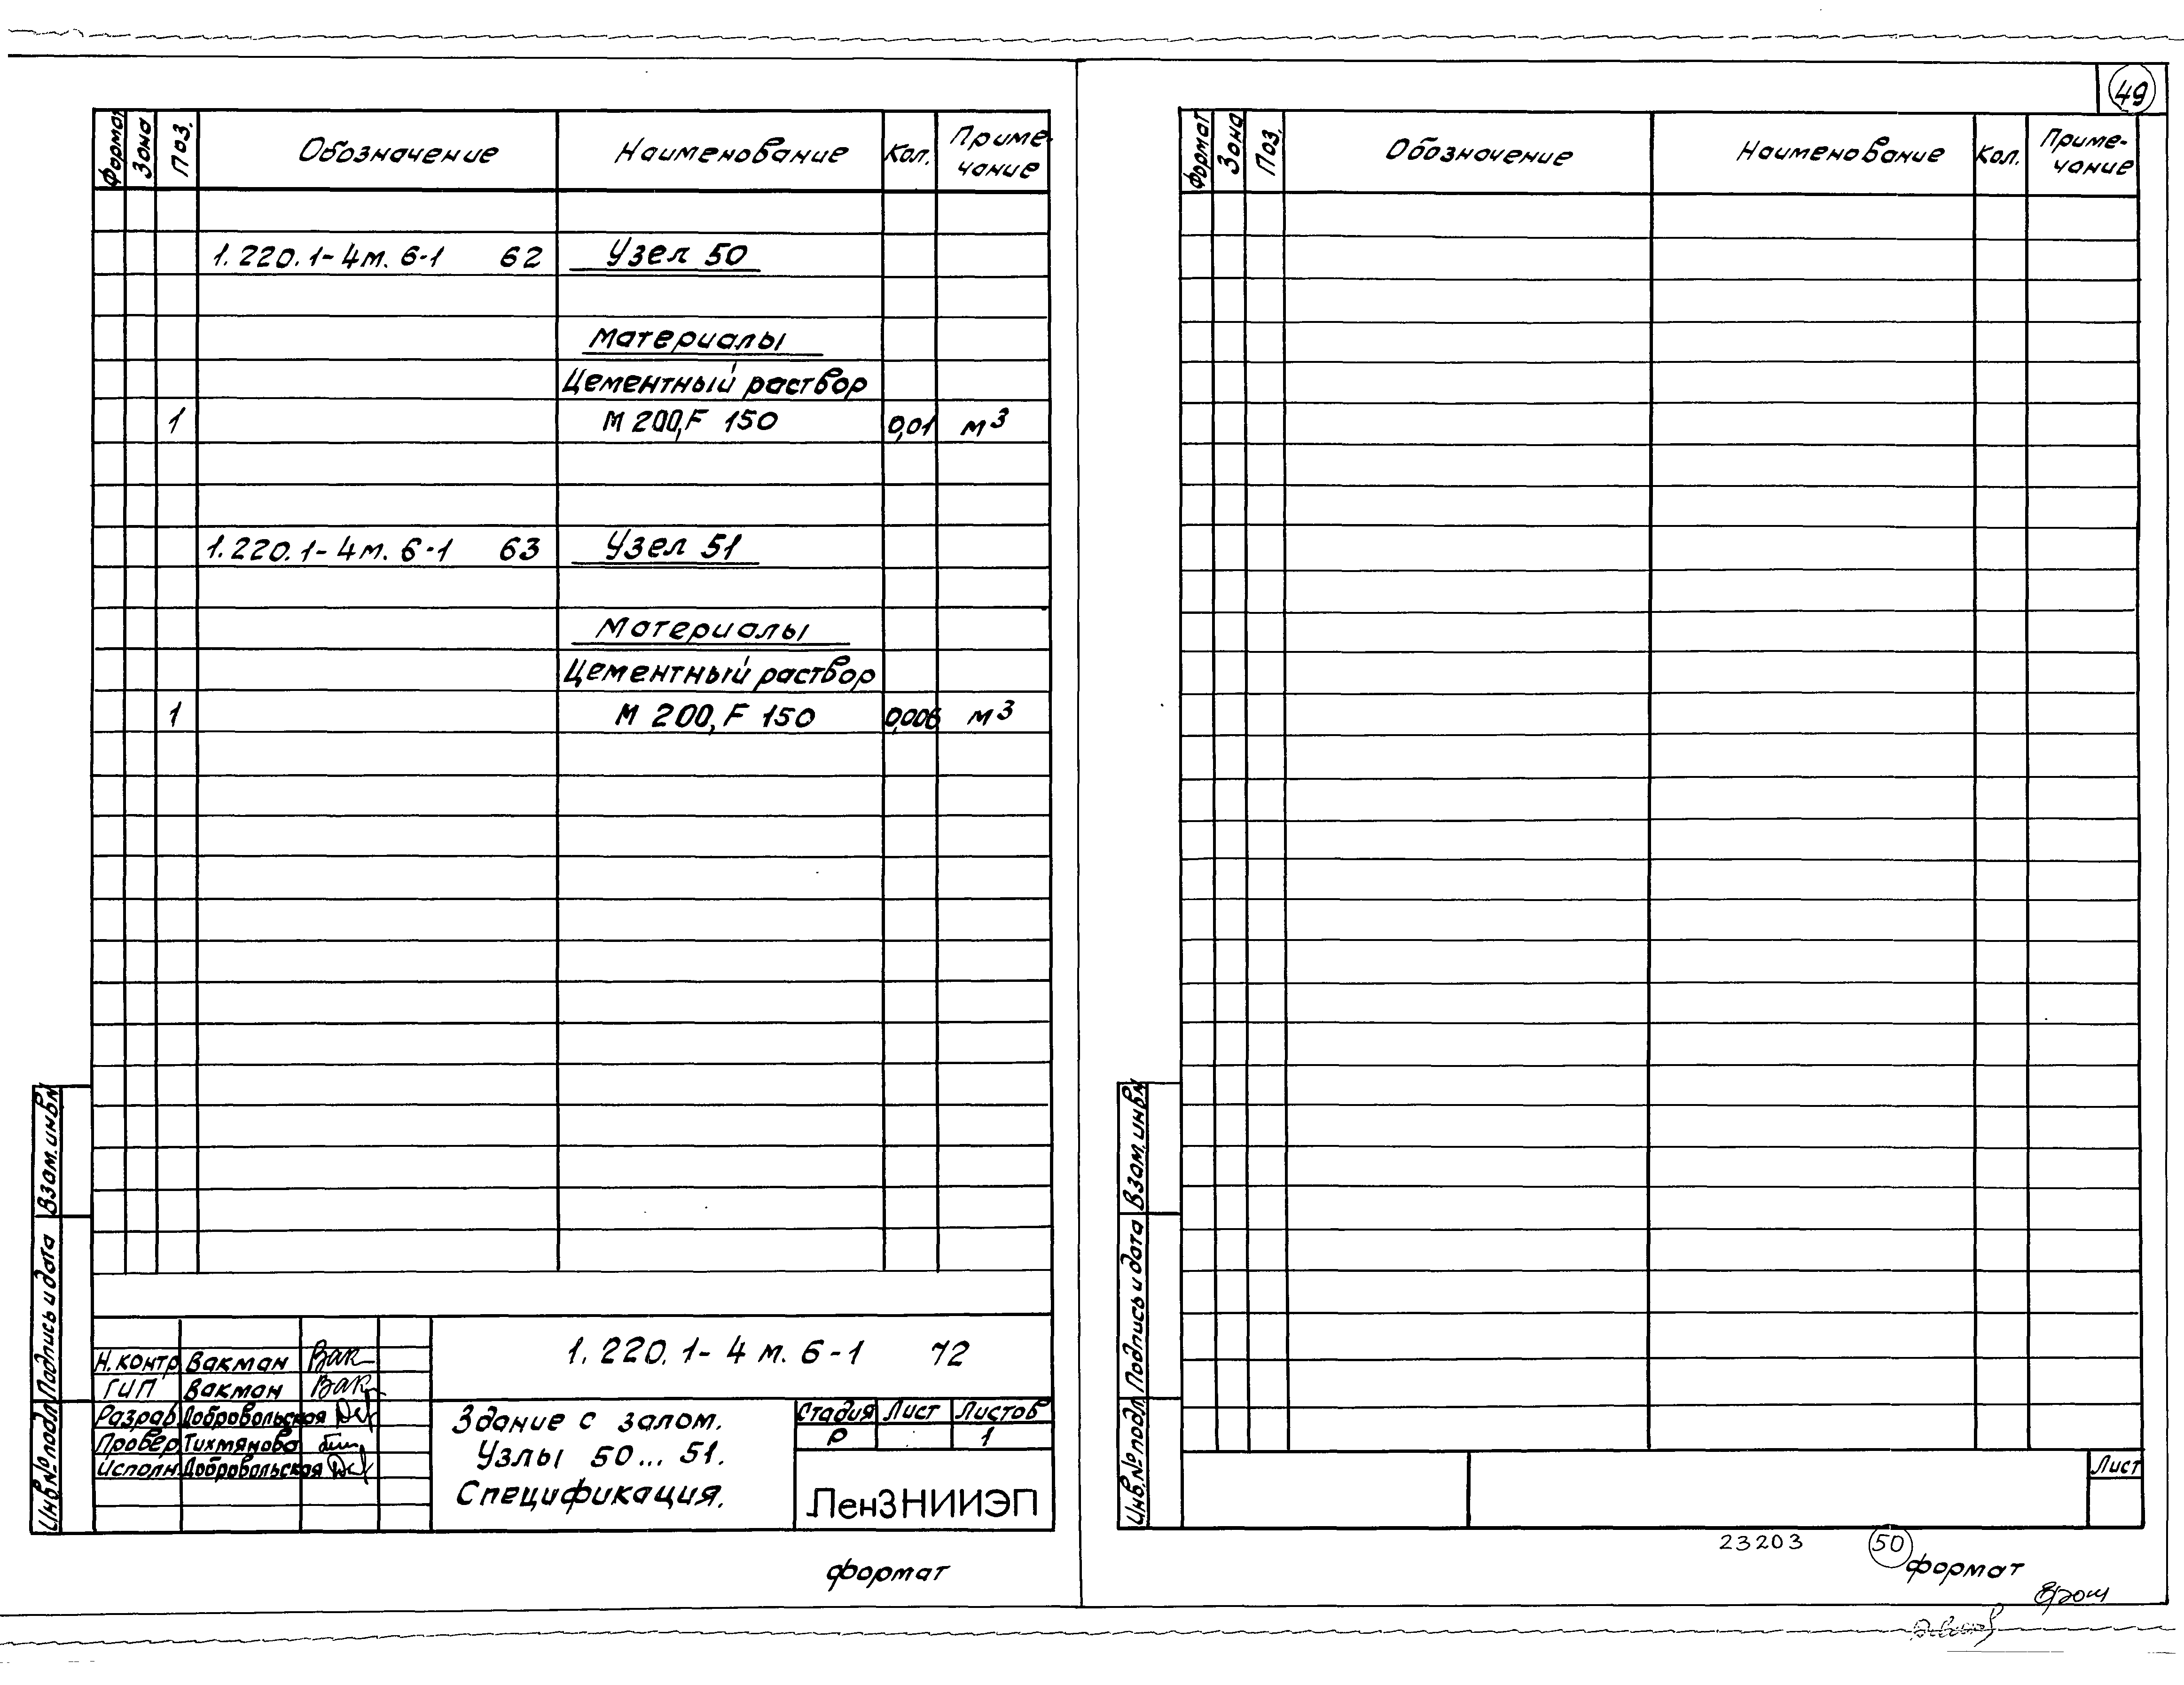 49
Формат Зона Поз. Обозначение Наименование Кол. Приме-
чание
1.220.1-4м.6-1 62 Узел 50
Материалы
Цементный раствор
1 М 200, F 150 0,01 м³
1.220.1-4м.6-1 63 Узел 51
Материалы
Цементный раствор
1 М 200, F 150 0,006 м³
Взам.инв.№
Подпись и дата
Инв.№ подл.
1.220.1-4м.6-1 72
Н.контр Вакман Вак
ГИП Вакман Вак
Разраб. Добровольская
Провер. Тихмянова
Исполн. Добровольская
Здание с залом.
Узлы 50...51.
Спецификация.
Стадия Лист Листов
Р 1
ЛенЗНИИЭП
формат
Формат Зона Поз. Обозначение Наименование Кол. Приме-
чание
Взам.инв.№
Подпись и дата
Инв.№ подл.
Лист
23203 50
формат